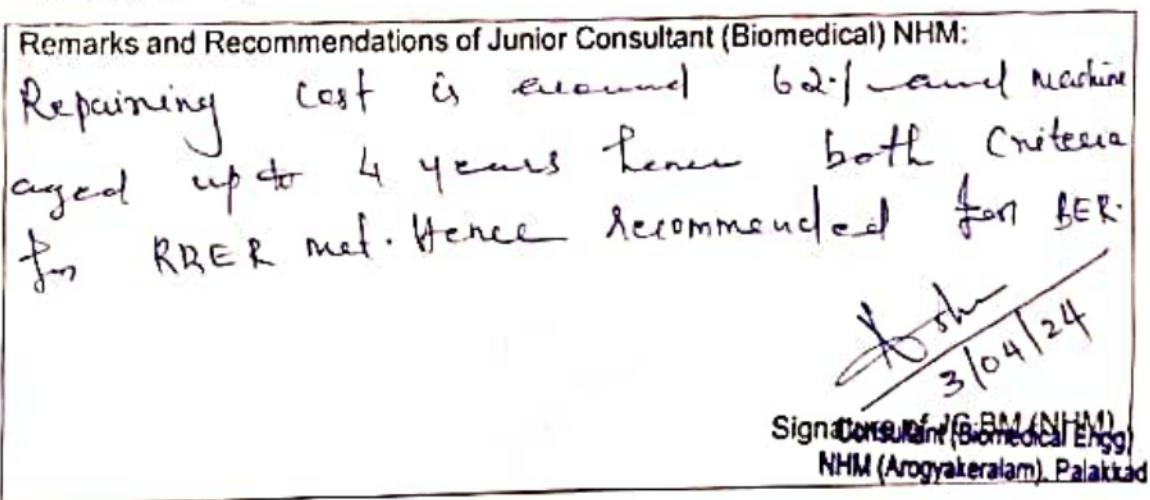 Remarks and Recommendations of Junior Consultant (Biomedical) NHM:
Repairing cost is around 62% and machine
aged up to 4 years hence both Criteria
for RBER met. Hence recommended for BER.
3/04/24
Signature of JC-BM (NHM)
Consultant (Biomedical Engg)
NHM (Arogyakeralam), Palakkad